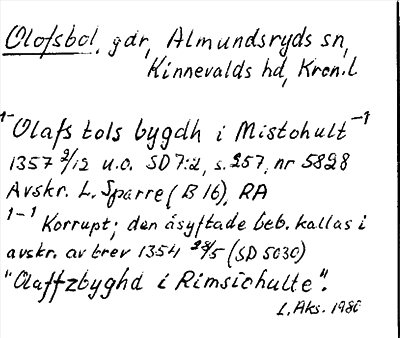 Olofsbol, gdr, Almundsryds sn,
Kinnevalds hd, Kron.l
1-Olafs tols bygdh i Mistohult-1
1357 2/12 u.o. SD 7:2, s. 257, nr 5828
Avskr. L. Sparre (B 16), RA
1-1 Korrupt; den åsyftade beb. kallas i
avskr. av brev 1354 28/5 (SD 5030)
"Olaffzbyghd i Rimsichulte".
L. Aks. 1980